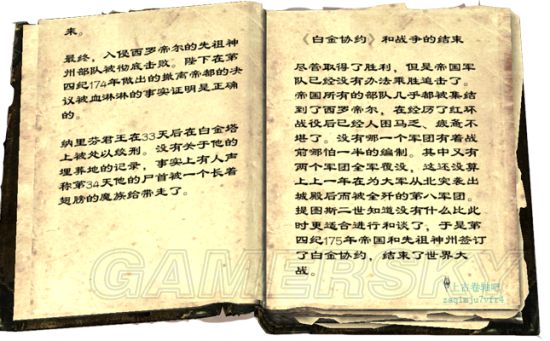 束。
最终，入侵西罗帝尔的先祖神
州部队被彻底击败。陛下在第
四纪174年做出的撤离帝都的决
议被血淋淋的事实证明是正确
的。
纳里芬君王在33天后在白金塔
上被处以绞刑。没有关于他的
埋葬地的记录，事实上有人声
称第34天他的尸首被一个长着
翅膀的魔族给带走了。
《白金协约》和战争的结束
尽管取得了胜利，但是帝国军
队已经没有办法乘胜追击了。
帝国所有的部队几乎都被集结
到了西罗帝尔，在经历了红环
战役后已经人困马乏、疲惫不
堪了。没有哪一个军团有着战
前哪怕一半的编制。其中又有
两个军团全军覆没，这还没算
上上一年在为大军从北突袭出
城殿后而被全歼的第八军团。
提图斯二世知道没有什么比此
时更适合进行和谈了，于是第
四纪175年帝国和先祖神州签订
了白金协约，结束了世界大
战。
GAMERSKY
上古卷轴吧
zaqimju7vfr4